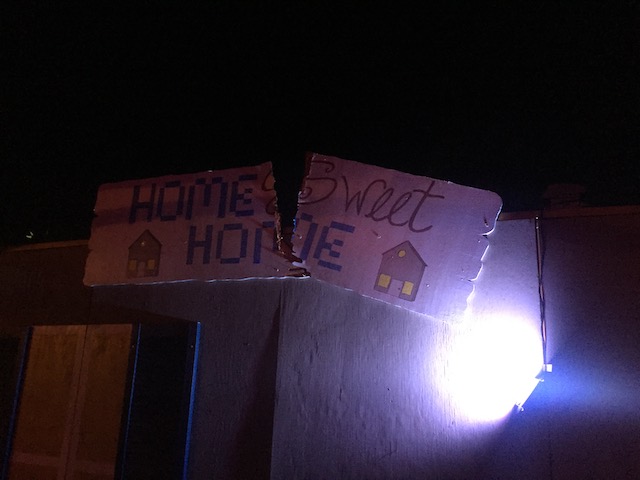 HOME Sweet
HOME